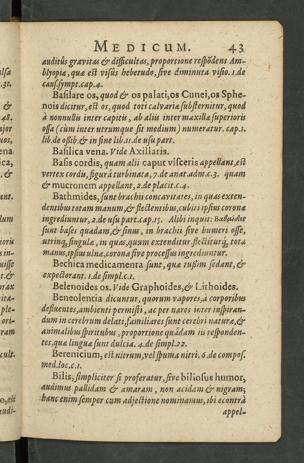 MEDICUM. 43
auditus gravitas & difficultas, proportione respõdens Am-
blyopia, qua est visus hebetudo, sive diminuta visio. 1. de
caus. sympt. cap. 4.
Basilare os, quod & os palati, os Cunei, os Sphe-
nois dicitur, est os, quod toti calvaria substernitur, quod
à nonnullis inter capitis, ab aliis inter maxilla superioris
ossa (cum inter utrumque sit medium) numeratur. cap. 1.
lib. de ossib. & in fine lib. 11. de usu part.
Basilica vena. Vide Axillaris.
Basis cordis, quam alii caput visceris appellant, est
vertex cordis, figura turbinata, 7. de anat. adm. c. 3. quam
& mucronem appellant, 2. de placit. c. 4.
Bathmides, sunt brachii concavitates, in quas exten-
dentibus totam manum, & flectentibus, cubiti ipsius corona
ingrediuntur, 2. de usu part. cap. 15. Alibi inquit:
sunt bases quædam, & sinus, in brachii sive humeri osse,
utrinq, singula, in quas, quum extenditur flectiturq, tota
manus, ipsius ulna, corona sive processus ingrediuntur.
Bechica medicamenta sunt, qua tussim sedant, &
expectorant. 1. de simpl. c. 1.
Belenoides os. Vide Graphoides, & Lithoides.
Beneolentia dicuntur, quorum vapores, à corporibus
defluentes, ambienti permisti, ac per nares inter inspiran-
dum in cerebrum delati, familiares sunt cerebri natura, &
animalibus spiritibus, proportione quâdam iis responden-
tes, qua lingua sunt dulcia. 4. de simpl. 22.
Berenicium, est nitrum, vel spuma nitri. 6. de compos.
med. loc. c. 1.
Bilis, simpliciter si proferatur, sive biliosus humor,
audimus pallidam & amaram, non acidam & nigram;
hanc enim semper cum adjectione nominamus, ibi econtrà
appel-